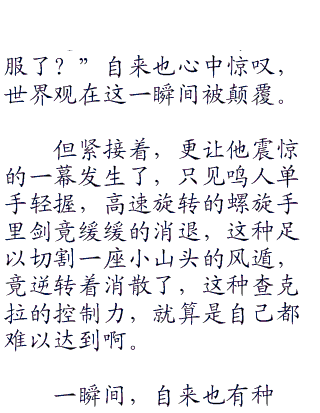 服了？” 自来也心中惊叹，
世界观在这一瞬间被颠覆。
但紧接着，更让他震惊
的一幕发生了，只见鸣人单
手轻握，高速旋转的螺旋手
里剑竟缓缓的消退，这种足
以切割一座小山头的风遁，
竟逆转着消散了，这种查克
拉的控制力，就算是自己都
难以达到啊。
一瞬间，自来也有种